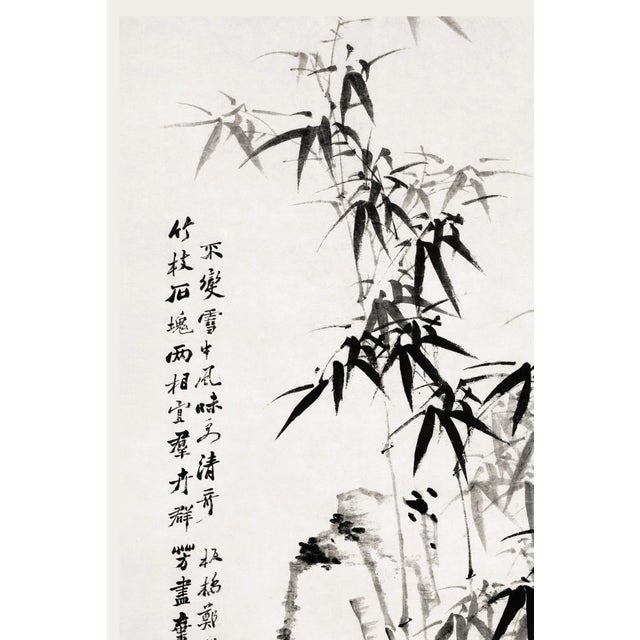 竹枝石塊兩相宜羣卉群芳盡棄
不變雪中風味更清奇 板橋鄭